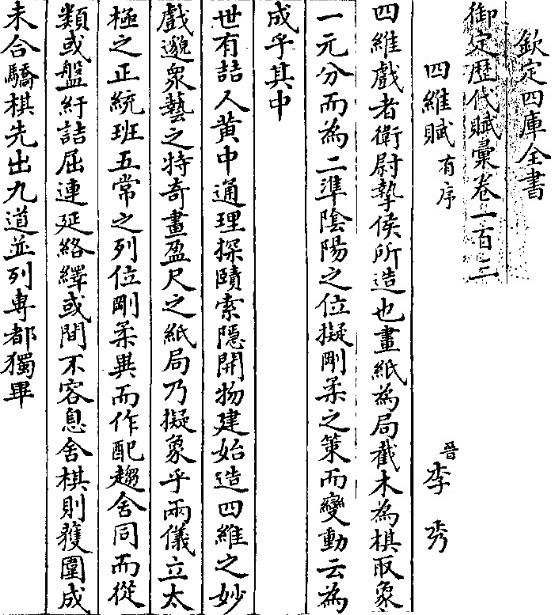 欽定四庫全書
御定歴代賦彙卷一百三
四維賦有序
晉李秀
四維戲者衛尉摯侯所造也畫紙為局截木為棋取象
一元分而為二準陰陽之位擬剛柔之策而變動云為
成乎其中
世有喆人黃中通理探賾索隠開物建始造四維之妙
戲邈衆藝之特奇畫盈尺之紙局乃擬象乎兩儀立太
極之正統班五常之列位剛柔異而作配趨舍同而從
類或盤紆詰屈連延絡繹或間不容息舍棋則獲圍成
未合驕棋先出九道並列専都獨畢